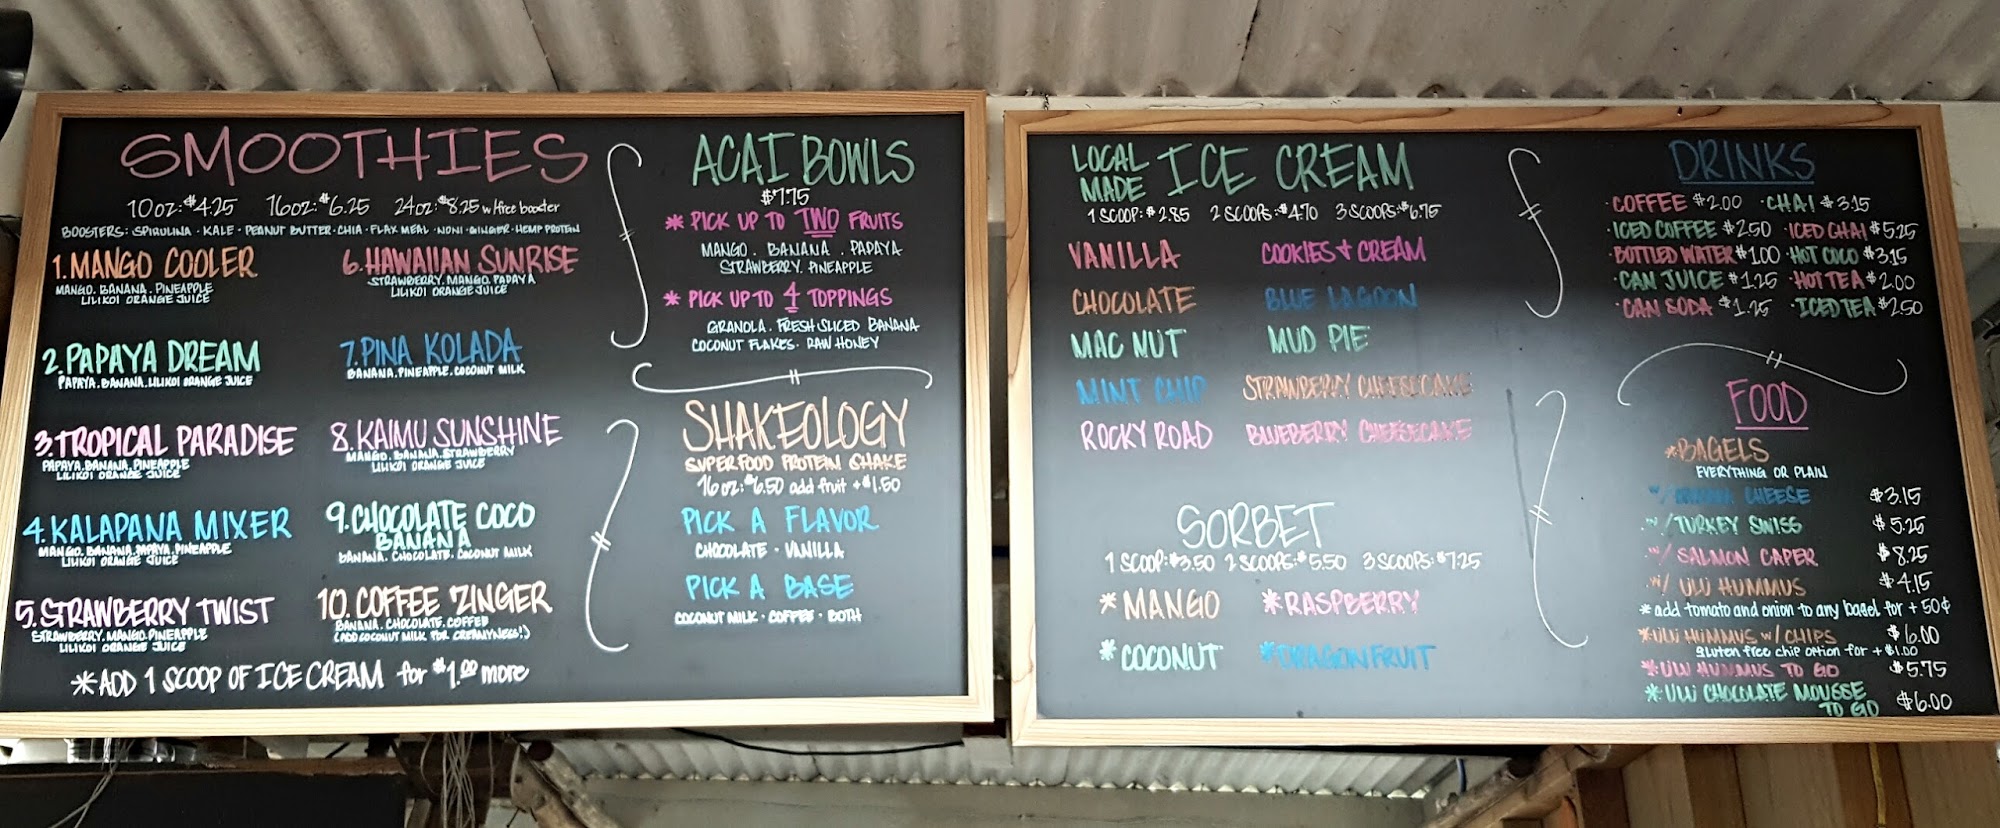 SMOOTHIES
10oz: $4.25 16oz: $6.25 24oz: $8.25 w/free booster
BOOSTERS: SPIRULINA · KALE · PEANUT BUTTER · CHIA · FLAX MEAL · NONI · GINGER · HEMP PROTEIN
1. MANGO COOLER
MANGO. BANANA. PINEAPPLE
LILIKOI ORANGE JUICE
2. PAPAYA DREAM
PAPAYA. BANANA. LILIKOI ORANGE JUICE
3. TROPICAL PARADISE
PAPAYA. BANANA. PINEAPPLE
LILIKOI ORANGE JUICE
4. KALAPANA MIXER
MANGO. BANANA. PAPAYA. PINEAPPLE
LILIKOI ORANGE JUICE
5. STRAWBERRY TWIST
STRAWBERRY. MANGO. PINEAPPLE
LILIKOI ORANGE JUICE
6. HAWAIIAN SUNRISE
STRAWBERRY. MANGO. PAPAYA
LILIKOI ORANGE JUICE
7. PINA KOLADA
BANANA. PINEAPPLE. COCONUT MILK
8. KAIMU SUNSHINE
MANGO. BANANA. STRAWBERRY
LILIKOI ORANGE JUICE
9. CHOCOLATE COCO
BANANA
BANANA. CHOCOLATE. COCONUT MILK
10. COFFEE ZINGER
BANANA. CHOCOLATE. COFFEE
(ADD COCONUT MILK FOR CREAMYNESS!)
*ADD 1 SCOOP OF ICE CREAM for $1.00 more
ACAI BOWLS
$7.75
* PICK UP TO TWO FRUITS
MANGO. BANANA. PAPAYA
STRAWBERRY. PINEAPPLE
* PICK UP TO 4 TOPPINGS
GRANOLA. FRESH SLICED BANANA
COCONUT FLAKES. RAW HONEY
SHAKEOLOGY
SUPERFOOD PROTEIN SHAKE
16oz: $6.50 add fruit +$1.50
PICK A FLAVOR
CHOCOLATE · VANILLA
PICK A BASE
COCONUT MILK · COFFEE · BOTH
LOCAL MADE ICE CREAM
1 SCOOP: $2.85 2 SCOOPS: $4.70 3 SCOOPS: $6.75
VANILLA COOKIES + CREAM
CHOCOLATE BLUE LAGOON
MAC NUT MUD PIE
MINT CHIP STRAWBERRY CHEESECAKE
ROCKY ROAD BLUEBERRY CHEESECAKE
SORBET
1 SCOOP: $3.50 2 SCOOPS: $5.50 3 SCOOPS: $7.25
*MANGO *RASPBERRY
*COCONUT *DRAGONFRUIT
DRINKS
·COFFEE $2.00 ·CHAI $3.15
·ICED COFFEE $2.50 ·ICED CHAI $5.25
·BOTTLED WATER $1.00 ·HOT COCO $3.15
·CAN JUICE $1.25 ·HOT TEA $2.00
·CAN SODA $1.25 ·ICED TEA $2.50
FOOD
*BAGELS
EVERYTHING OR PLAIN
w/ CHEESE $3.15
w/ TURKEY SWISS $5.25
w/ SALMON CAPER $8.25
w/ ULU HUMMUS $4.15
* add tomato and onion to any bagel for + 50¢
*ULU HUMMUS w/ CHIPS $6.00
gluten free chip option for + $1.00
*ULU HUMMUS TO GO $5.75
*ULU CHOCOLATE MOUSSE
TO GO $6.00